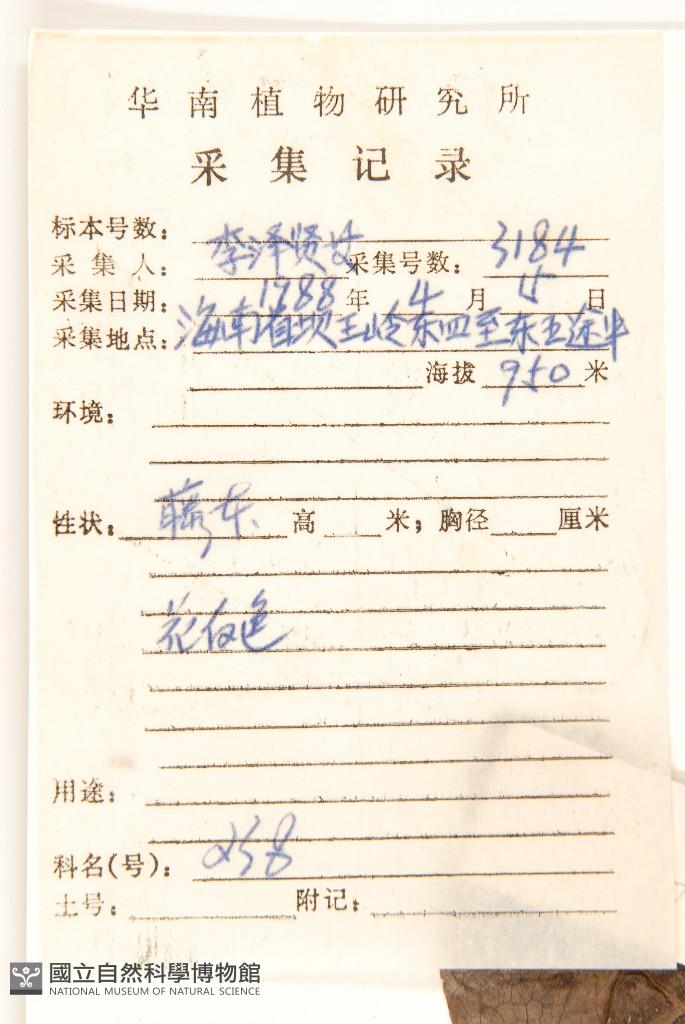 华南植物研究所
采集记录
标本号数：
采集人：李泽贤 采集号数：3184
采集日期：1988年4月15日
采集地点：海南省坝王岭东四至东五途中
海拔950米
环境：
性状：藤本 高 米；胸径 厘米
花白色
用途：
科名(号)：
土号： 附记：
國立自然科學博物館
NATIONAL MUSEUM OF NATURAL SCIENCE